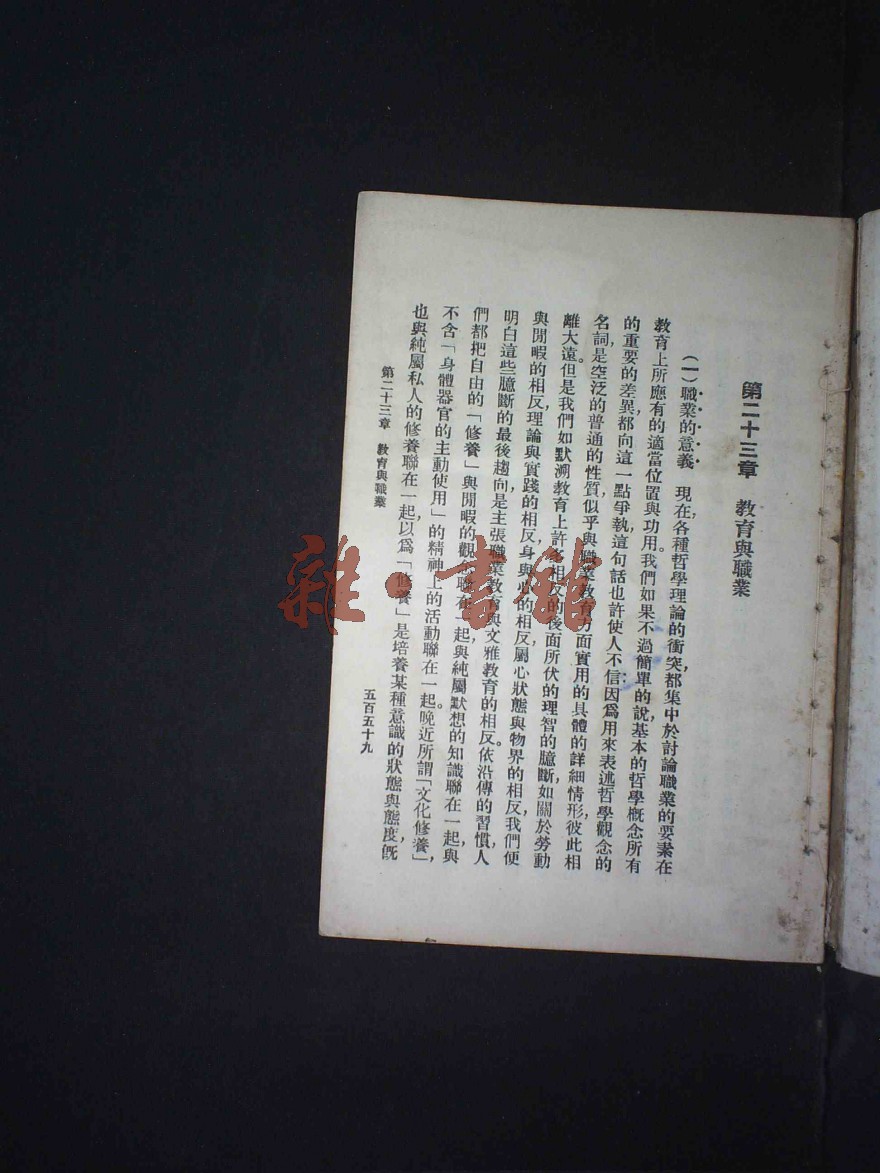 第二十三章　教育與職業
（一）職業的意義　現在各種哲學理論的衝突，都集中於討論職業的要素在
教育上所應有的適當位置與功用。我們如果不過簡單的說基本的哲學概念所有
的重要的差異都向這一點爭執，這句話也許使人不信：因爲用來表述哲學觀念的
名詞，是空泛的普通的性質，似乎與職業教育方面實用的具體的詳細情形，彼此相
離大遠。但是我們如默溯教育上許多相反的後面所伏的理智的臆斷，如關於勞動
與閒暇的相反，理論與實踐的相反，身與心的相反，屬心狀態與物界的相反，我們便
明白這些臆斷的最後趨向是主張職業教育與文雅教育的相反。依沿傳的習慣，人
們都把自由的「修養」與閒暇的觀念聯在一起，與純屬默想的知識聯在一起，與
不含「身體器官的主動使用」的精神上的活動聯在一起。晚近所謂「文化修養」，
也與純屬私人的修養聯在一起，以爲「修養」是培養某種意識的狀態與態度，旣
第二十三章　教育與職業
五百五十九
雜·書館